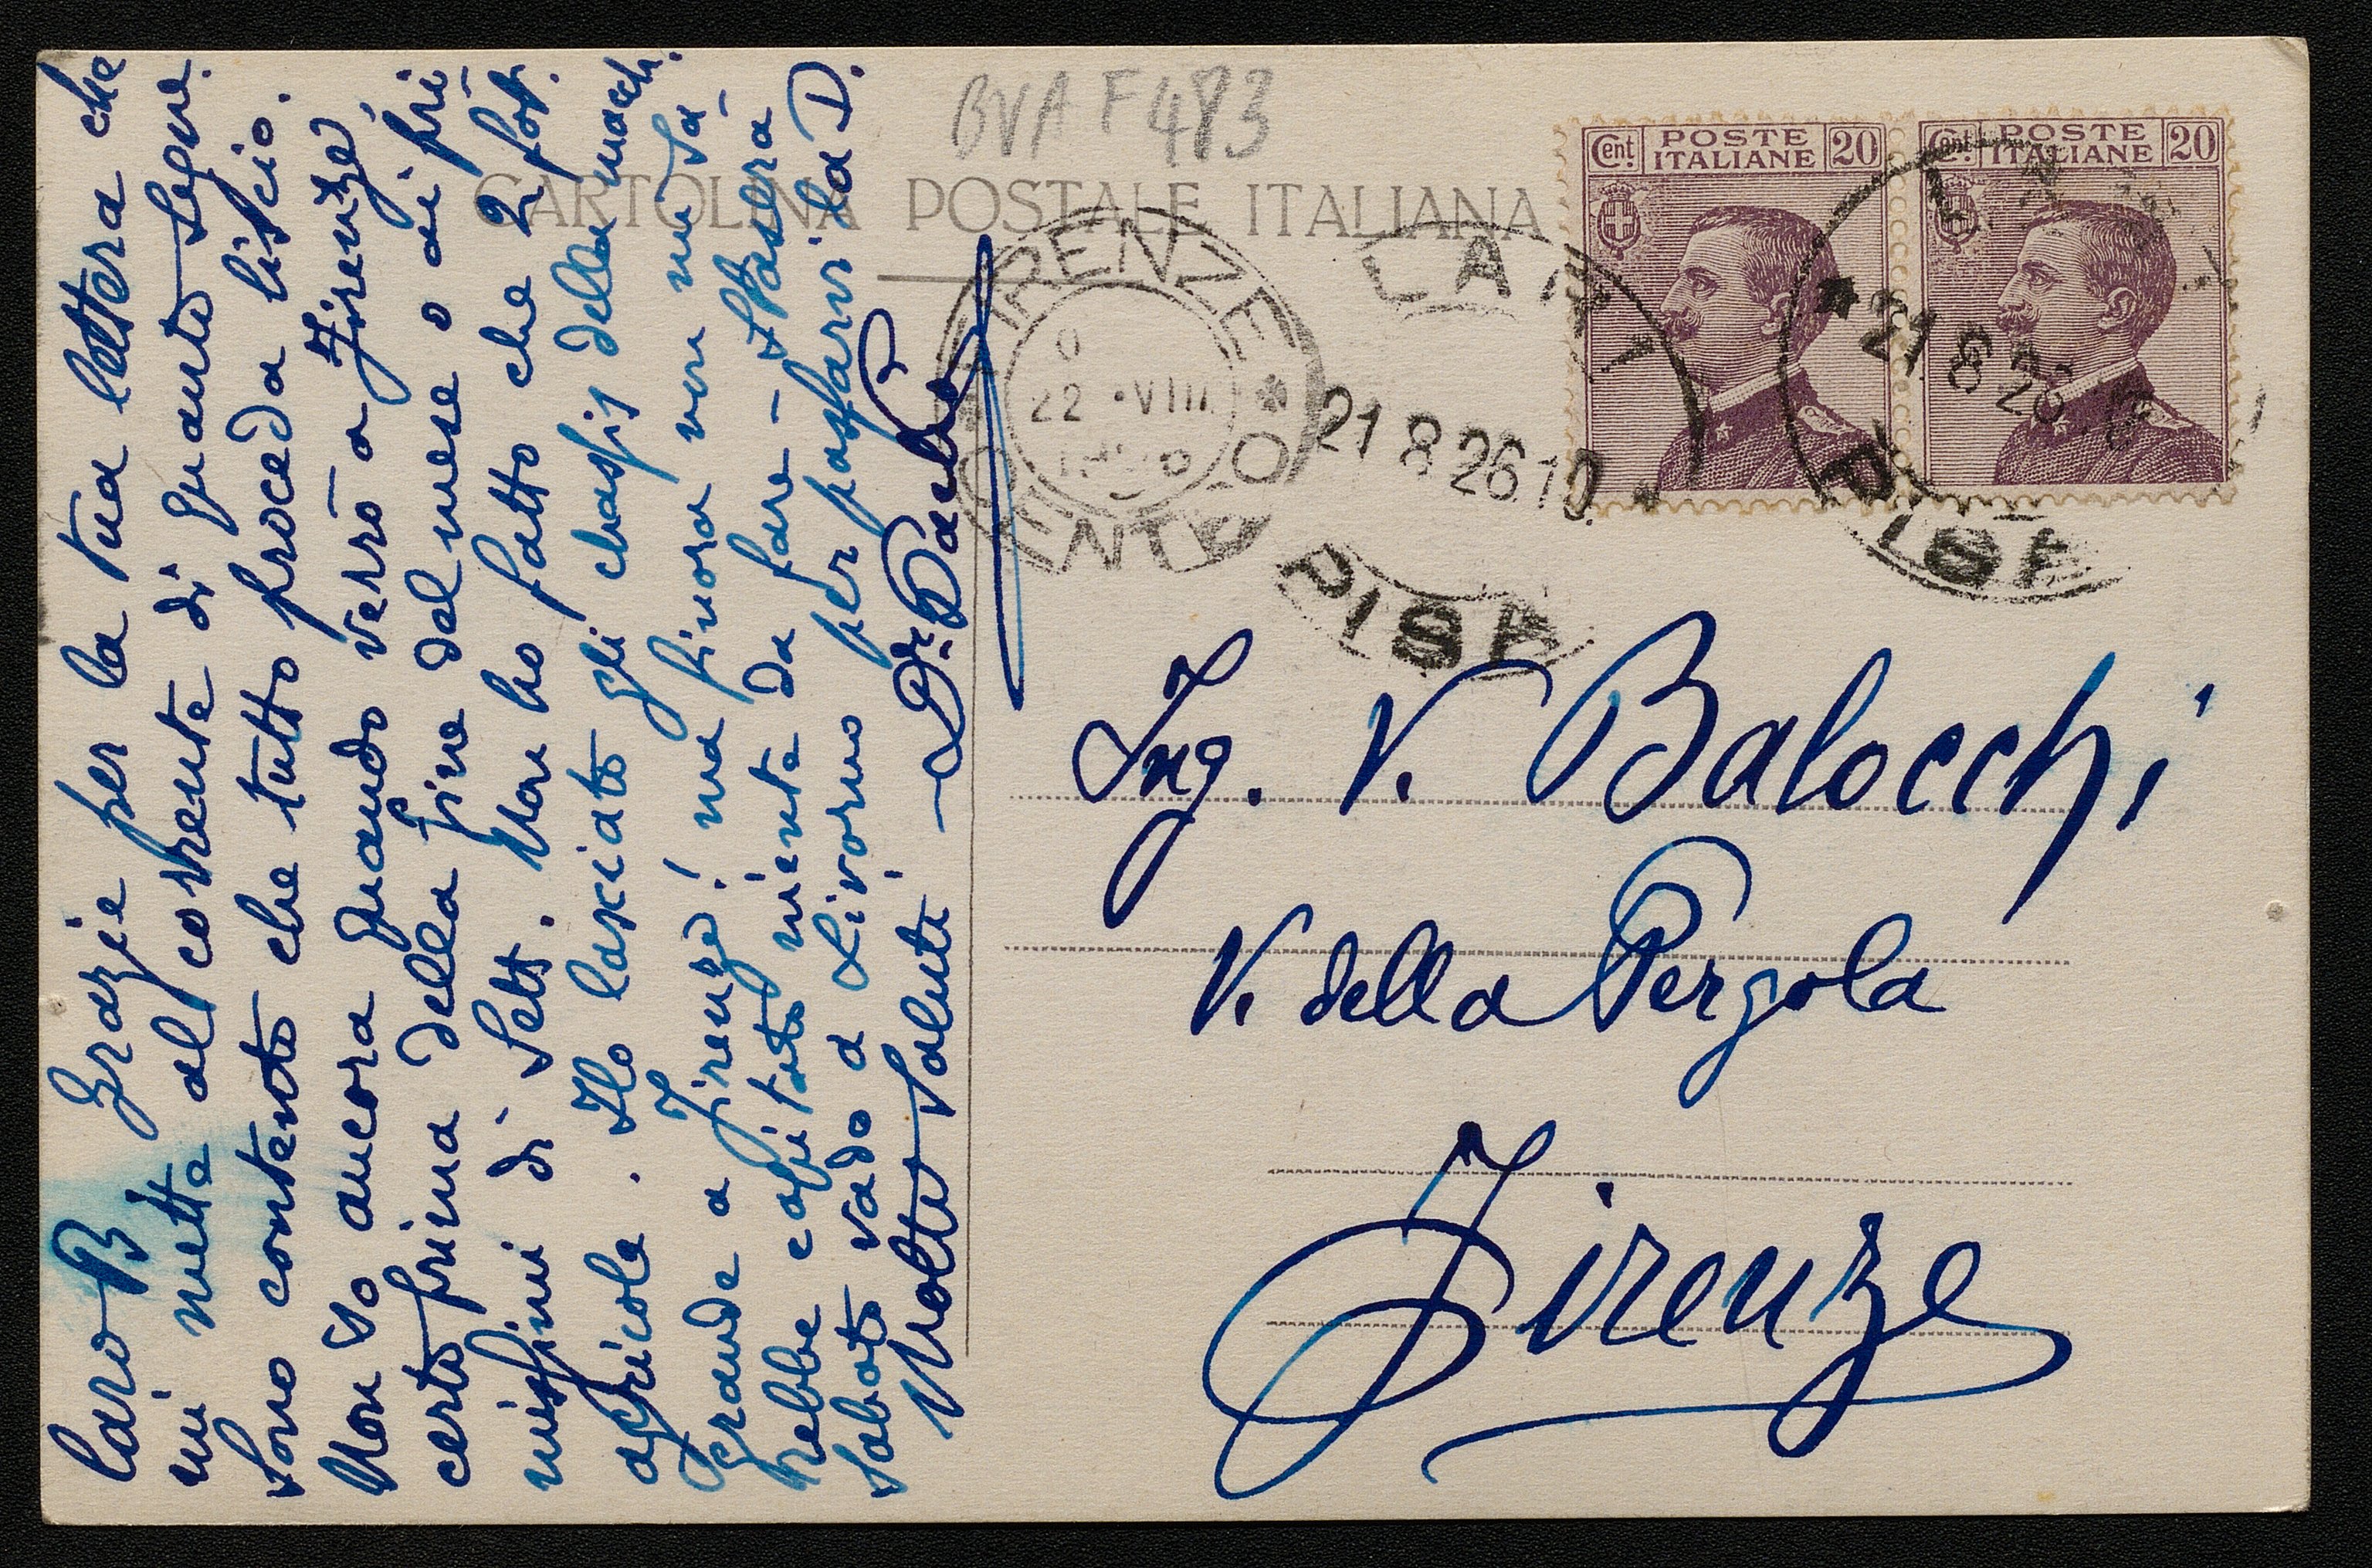 BVA F 483
CARTOLINA POSTALE ITALIANA
Cent. POSTE ITALIANE 20
Cent. POSTE ITALIANE 20
FIRENZE
22 • VIII
LARI
21 8 26 10
PISA
21 8 26
PISA
Caro B Grazie per la tua lettera che
mi mette al corrente di quanto segue.
Sono contento che tutto proceda liscio.
Non so ancora quando verrò a Firenze,
certo prima della fine del mese o ai pri-
missimi di Sett. Non ho fatto che 2 fot.
agricole. Ho lasciato gli chassis della macch.
grande a Firenze! ma finora non mi sa-
rebbe capitato niente da fare - Stasera
sabato vado a Livorno per passarvi la D.
Molti saluti - Dr.
Ing. V. Balocchi
V. della Pergola
Firenze